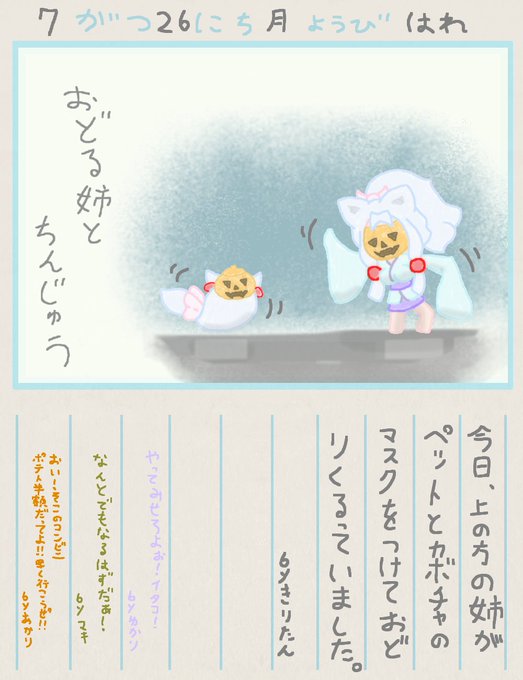 7がつ26にち月ようび はれ
おどる姉と
ちんじゅう
今日、上の方の姉が
ペットとカボチャの
マスクをつけておど
りくるっていました。
byきりたん
やってみせろよお!イタコ!
byゆかり
なんとでもなるはずだぁ!
byマキ
おい!そこのコンビニ
ポテト半額だってよ!!早く行こうぜ!!
byあかり